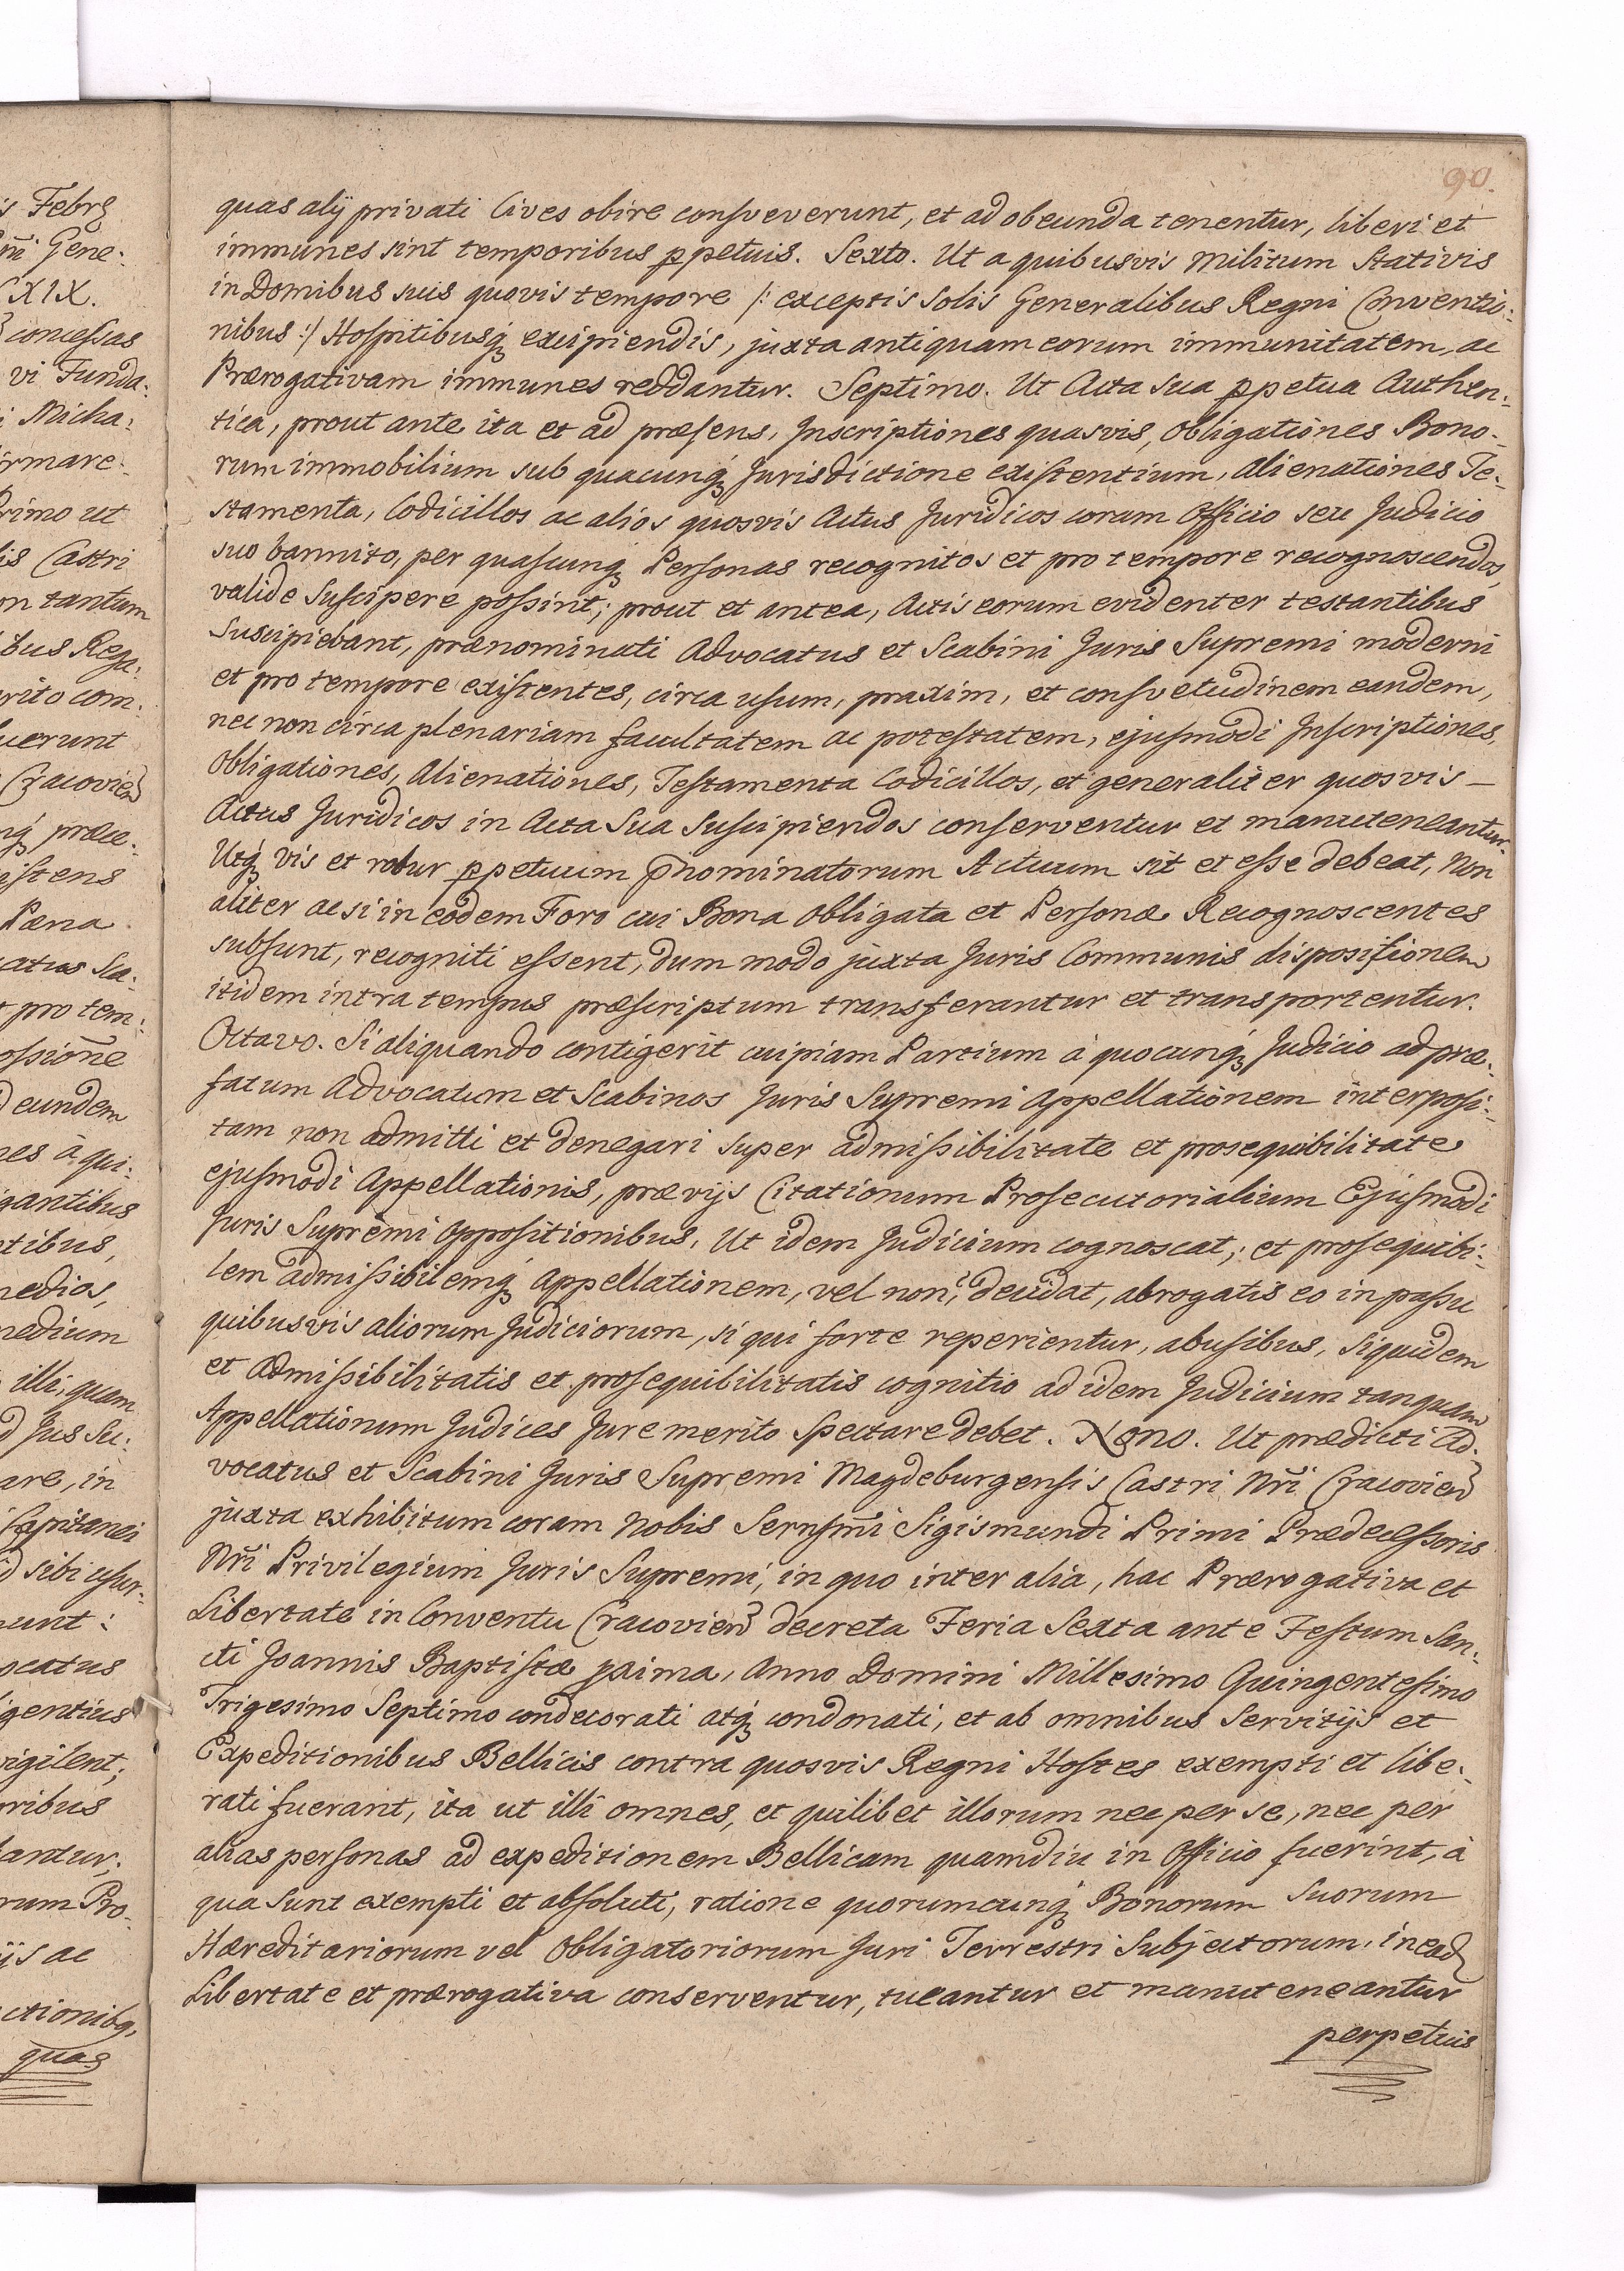 90.
quas alij privati Cives obire consveverunt, et ad obeunda tenentur, liberi et
immunes sint temporibus ppetuis. Sexto. Ut a quibusvis Militum Stativis
in Domibus suis quovis tempore /: exceptis solis Generalibus Regni Conventio:
nibus :/ Hospitibusq́ꝫ excipiendis, juxta antiquam eorum immunitatem, ac
Prærogativam immunes reddantur. Septimo. Ut Acta Sua ppetua Authen:
tica, prout ante ita et ad præsens, Inscriptiones quasvis, Obligationes Bono:
rum immobilium sub quacunq́ꝫ Jurisdictione existentium, Alienationes Te:
stamenta, Codicillos ac alios quosvis Actus Juridicos coram Officio seu Judicio
suo bannito, per quascunq́ꝫ Personas recognitos et pro tempore recognoscendos,
valide Suscipere possint; prout et antea, Actis eorum evidenter testantibus
Suscipiebant, prænominati Advocatus et Scabini Juris Supremi moderni
et pro tempore existentes, circa usum, praxim, et consvetudinem eandem,
nec non circa plenariam facultatem ac potestatem, ejusmodi Inscriptiones,
Obligationes, Alienationes, Testamenta Codicillos, et generaliter quosvis –
Actus Juridicos in Acta Sua Suscipiendos conserventur et manuteneantur.
Utq́ꝫ vis et robur ppetuum P̄nominatorum Actuum sit et esse debeat, Non
aliter ac si in eodem Foro cui Bona Obligata et Personæ Recognoscentes
subsunt, recogniti essent, dum modo juxta Juris Communis dispositionem
itidem intra tempus præscriptum transferantur et transportentur.
Octavo. Si aliquando contigerit cuipiam Partium à quocunq́ꝫ Judicio ad præ:
fatum Advocatum et Scabinos Juris Supremi Appellationem interposi:
tam non admitti et denegari super admissibilitate et prosequibilitate
ejusmodi Appellationis, prævijs Citationum Prosecutorialium Ejusmodi
Juris Supremi Oppositionibus, Ut idem Judicium cognoscat; et prosequibi:
lem admissibilemq́ꝫ Appellationem, vel non; decidat, abrogatis eo in passu
quibusvis aliorum Judiciorum, si qui forte reperientur, abusibus, Siquidem
et Admissibilitatis et prosequibilitatis cognitio ad idem Judicium tanquam
Appellationum Judices Jure merito Spectare debet. Nono. Ut prædicti Ad:
vocatus et Scabini Juris Supremi Magdeburgensis Castri Nr̄i Cracovien
juxta exhibitum coram Nobis Sernsm̄i Sigismundi Primi Prædecessoris
Nr̄i Privilegium Juris Supremi, in quo inter alia, hac Prærogativa et
Libertate in Conventu Cracovien decreta Feria Sexta ante Festum San:
cti Joannis Baptistæ pxima, Anno Domini Millesimo Quingentesimo
Trigesimo Septimo condecorati atq́ꝫ condonati, et ab omnibus Servitijs et
Expeditionibus Bellicis contra quosvis Regni Hostes exempti et libe:
rati fuerant, ita ut illi omnes, et quilibet illorum nec per se, nec per
alias personas ad expeditionem Bellicam quamdiu in Officio fuerint, à
qua Sunt exempti et absoluti, ratione quorumcunq́ꝫ Bonorum Suorum
Hæreditariorum vel Obligatoriorum Juri Terrestri Subjectorum, in ead
Libertate et prærogativa conserventur, tueantur et manuteneantur
perpetuis